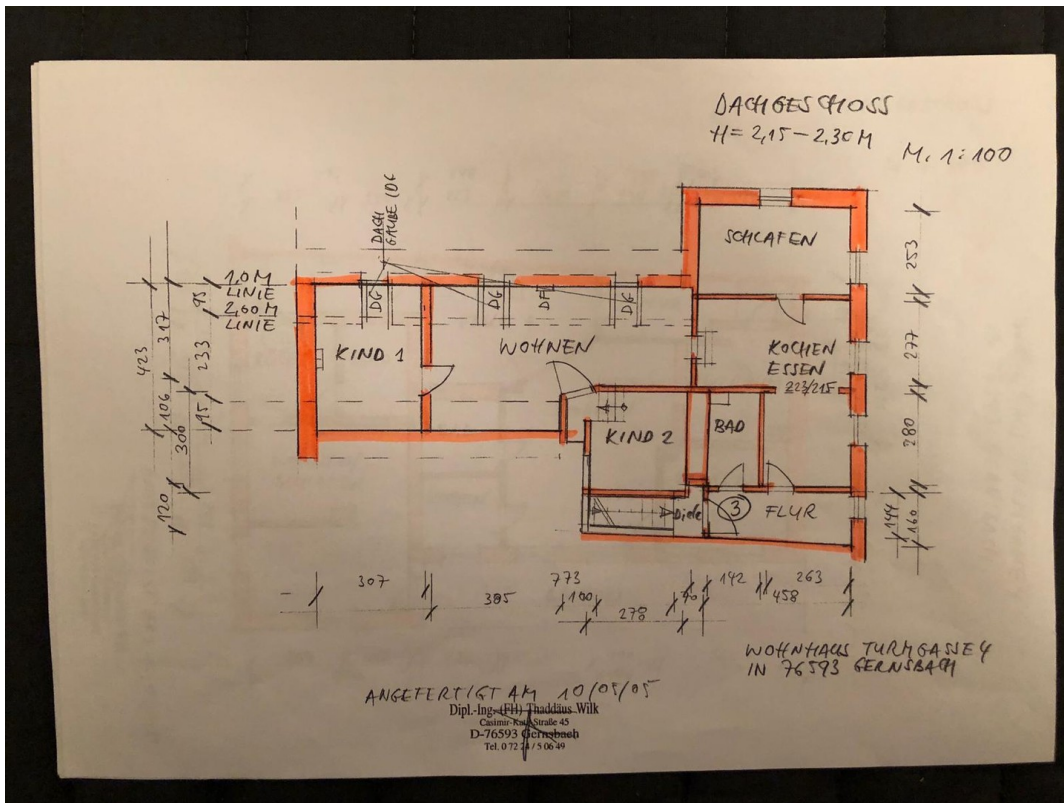 DACHGESCHOSS
H= 2,15 – 2,30 M
M. 1:100
DACH
GAUBE (DG
1,0 M
LINIE
2,60 M
LINIE
SCHLAFEN
DG
DG
DF
DG
KIND 1
WOHNEN
KOCHEN
ESSEN
223/215
KIND 2
BAD
Diele
3
FLUR
423
317
106
300
120
95
233
95
253
277
280
144
160
307
773
142
263
385
100
70
458
278
WOHNHAUS TURMGASSE 4
IN 76593 GERNSBACH
ANGEFERTIGT AM 10/05/05
Dipl.-Ing. (FH) Thaddäus Wilk
Casimir-Katz-Straße 45
D-76593 Gernsbach
Tel. 0 72 24 / 5 06 49